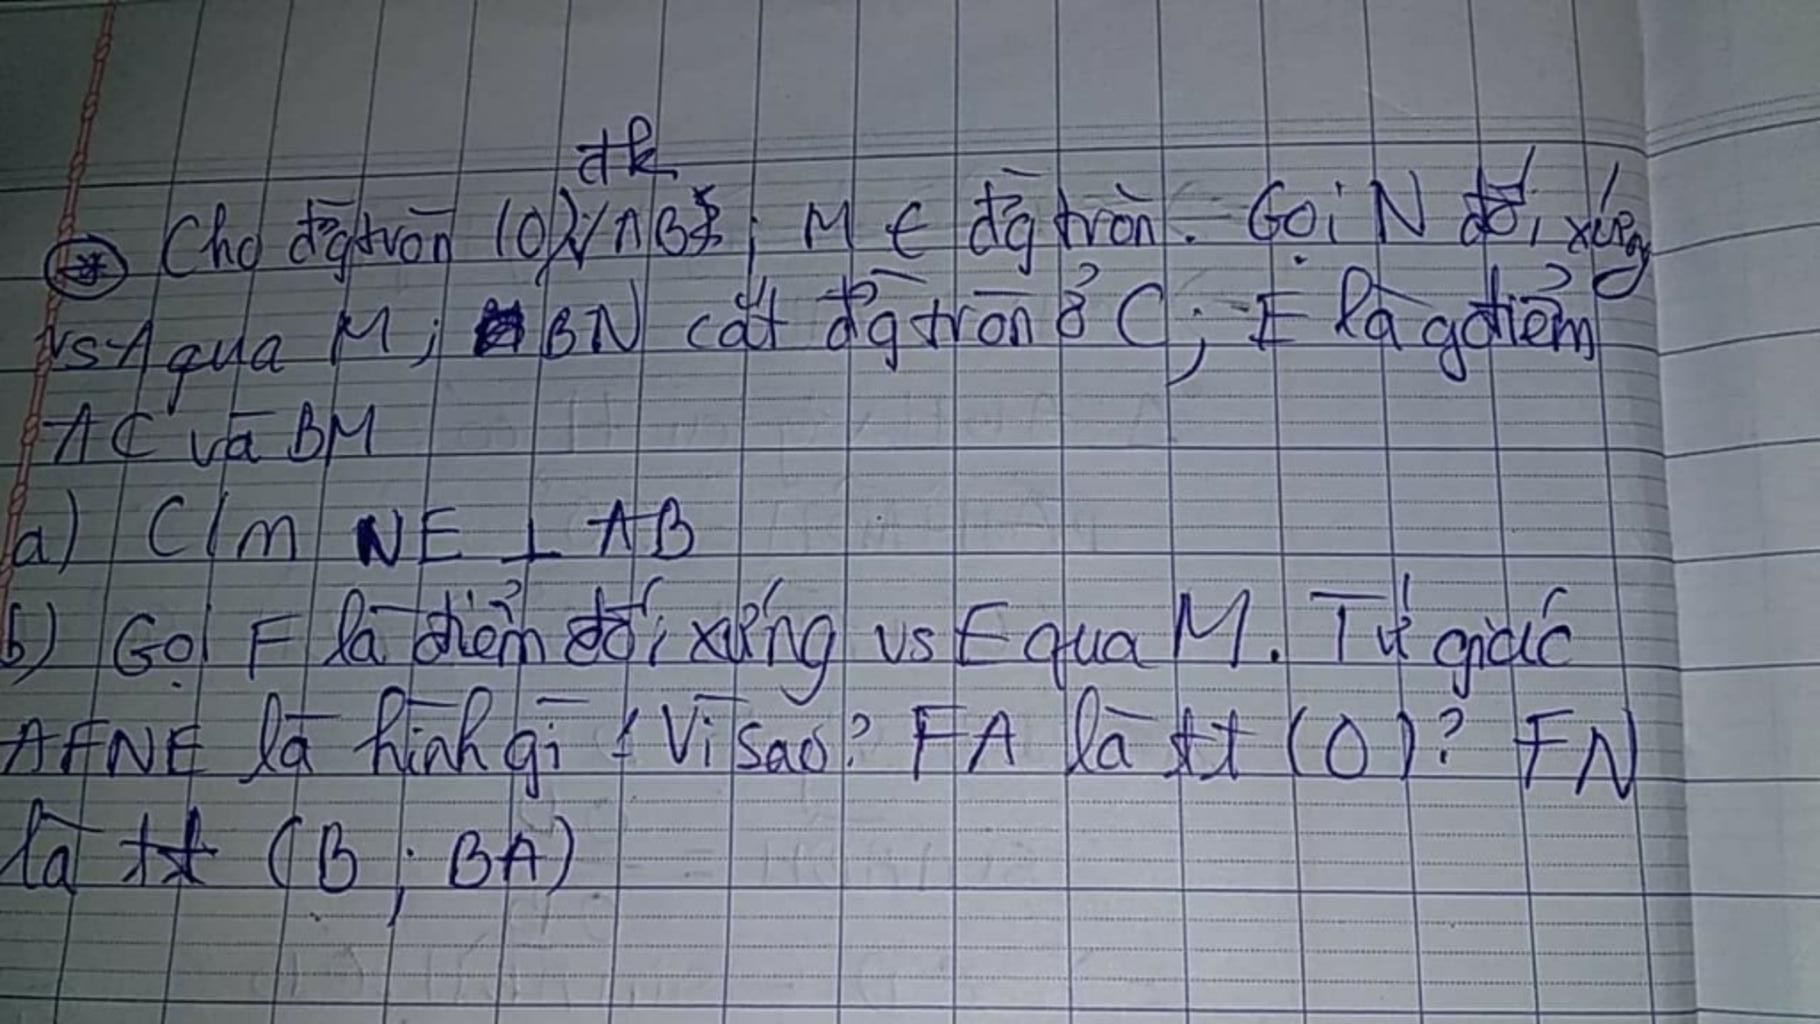 đk
Cho đg tròn (O) AB; M ∈ đg tròn. Gọi N đối xứng
vs A qua M; BN cắt đg tròn ở C; E là gđiểm
AC và BM
a) C/m NE ⊥ AB
b) Gọi F là điểm đối xứng vs E qua M. Tứ giác
AFNE là hình gì? Vì sao? FA là tt (O)? FN
là tt (B; BA)